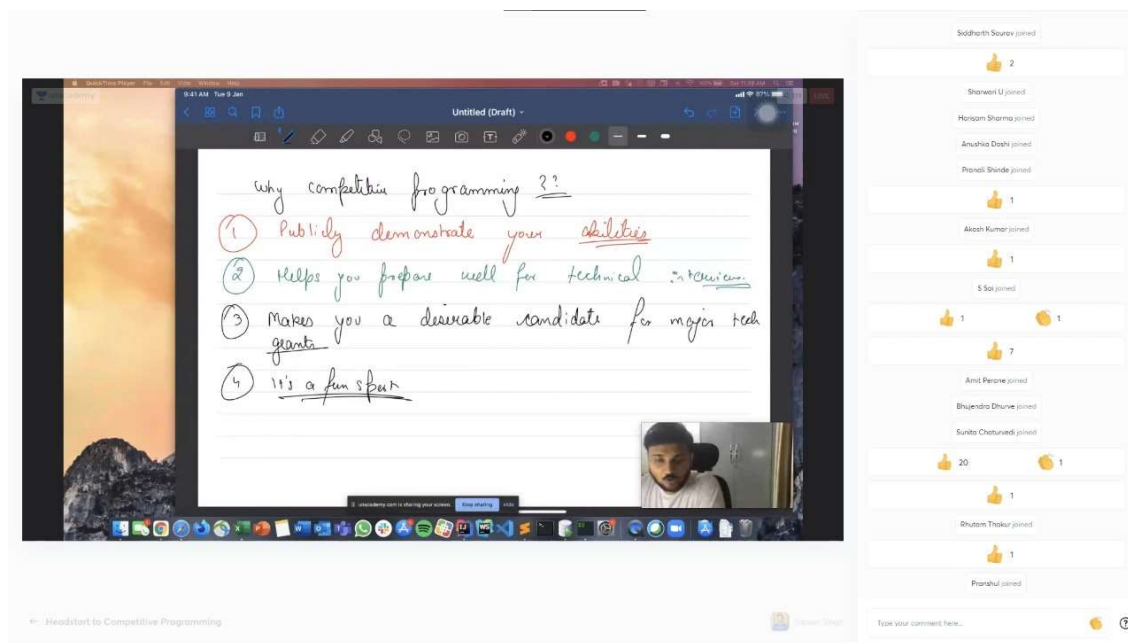 QuickTime Player File Edit View Window Help
9:41 AM Tue 9 Jan
87%
Untitled (Draft)
LIVE
Why competitive programming ??
1 Publicly demonstrate your abilities
2 Helps you prepare well for technical interviews.
3 Makes you a desirable candidate for major tech
geants
4 It's a fun sport
unacademy.com is sharing your screen. Stop sharing Hide
Headstart to Competitive Programming
Siddharth Sourav joined
2
Sharwari U joined
Harisam Sharma joined
Anushka Doshi joined
Pranali Shinde joined
1
Akash Kumar joined
1
S Sai joined
1 1
7
Amit Perane joined
Bhujendra Dhurve joined
Sunita Chaturvedi joined
20 1
1
Rhutam Thakur joined
1
Pranshul joined
Type your comment here...